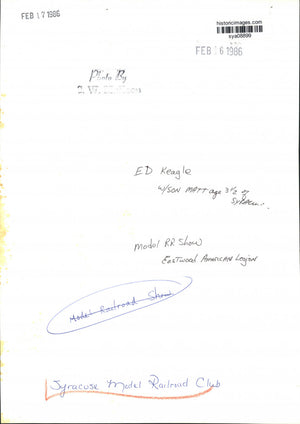 FEB 17 1986
historicimages.com
sya08899
FEB 16 1986
Photo By
ED Keagle
w/SON MATT age 3½ of
Model RR Show
Eastwood American Legion
Model Railroad Show
Syracuse Model Railroad Club